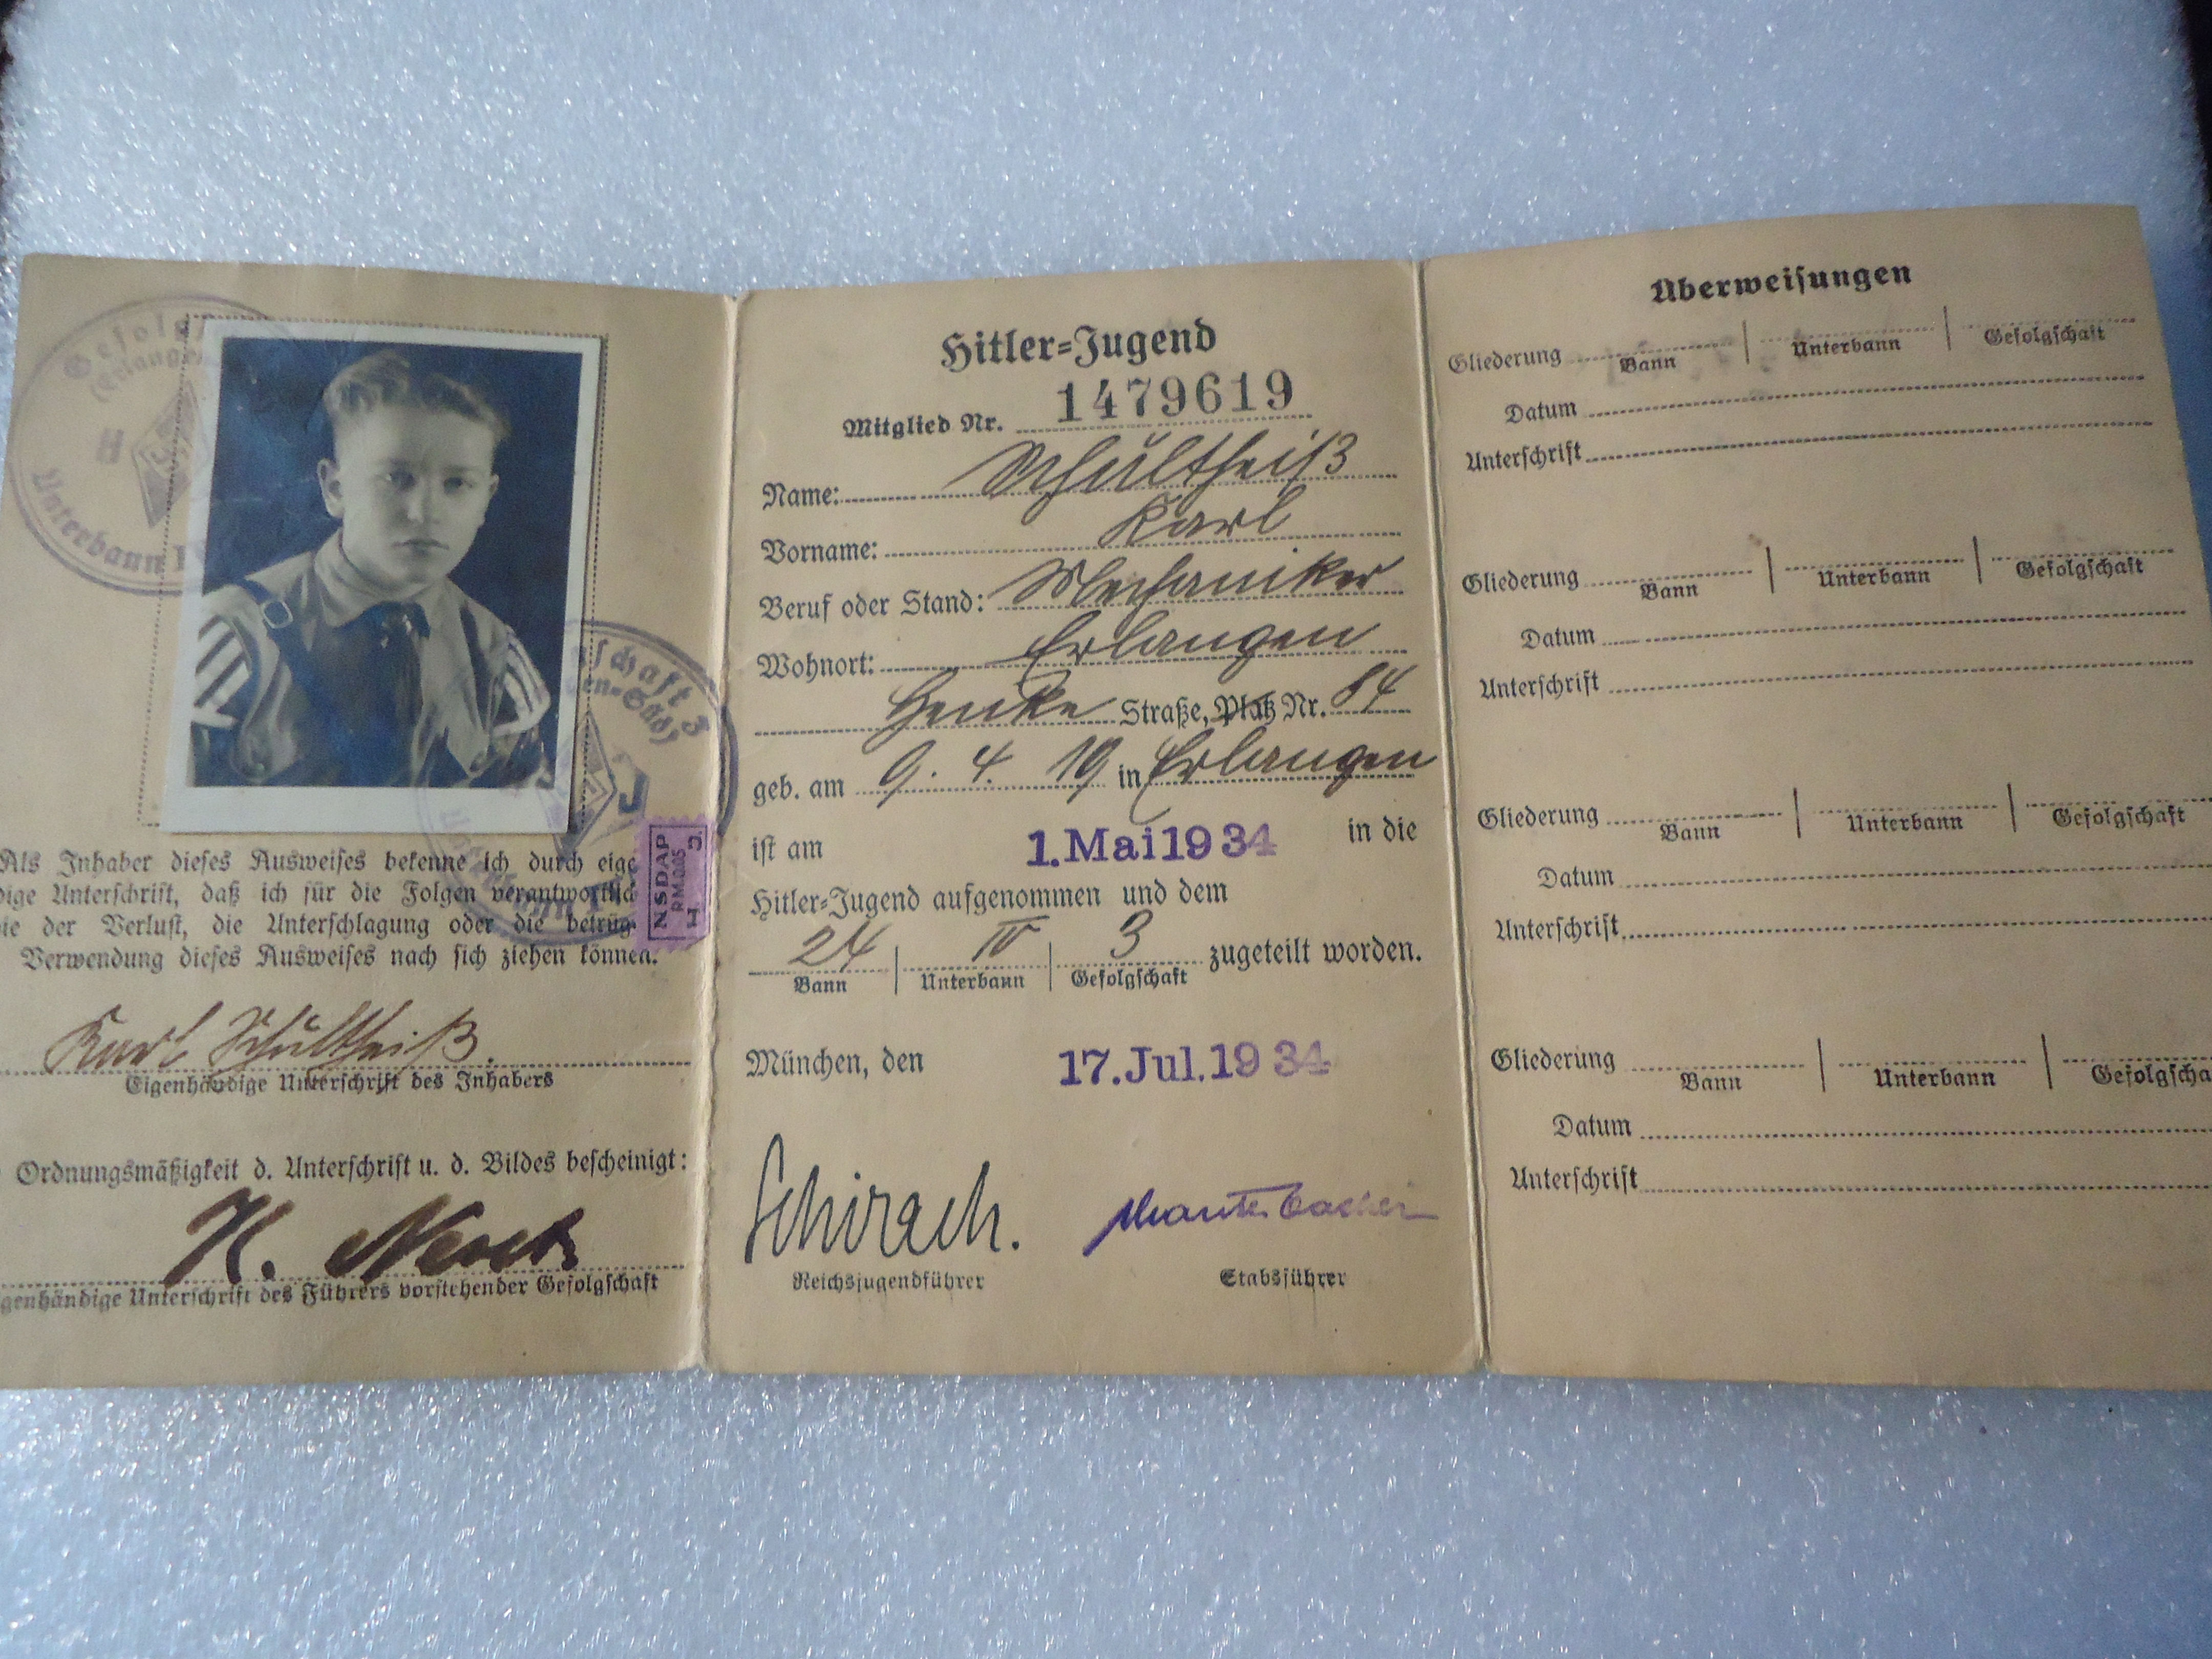 Gefolg
Erlangen
H
Unterbann
schaft 3
en-Süd)
J
NSDAP
RM.0.05
H. J.
Als Inhaber dieses Ausweises bekenne ich durch eige
ige Unterschrift, daß ich für die Folgen verantwortlich
ie der Verlust, die Unterschlagung oder die betrüg-
Verwendung dieses Ausweises nach sich ziehen können.
Karl Schultheiß.
Eigenhändige Unterschrift des Inhabers
Ordnungsmäßigkeit d. Unterschrift u. d. Bildes bescheinigt:
genhändige Unterschrift des Führers vorstehender Gefolgschaft
Hitler-Jugend
Mitglied Nr. 1479619
Name: Schultheiß
Vorname: Karl
Beruf oder Stand: Mechaniker
Wohnort: Erlangen
Henke Straße, Platz Nr. 84
geb. am 9. 4. 19 in Erlangen
ist am 1. Mai 1934 in die
Hitler-Jugend aufgenommen und dem
24 IV 3 zugeteilt worden.
Bann Unterbann Gefolgschaft
München, den 17. Jul. 1934
Schirach.
Reichsjugendführer Stabsführer
Überweisungen
Gliederung Bann Unterbann Gefolgschaft
Datum
Unterschrift
Gliederung Bann Unterbann Gefolgschaft
Datum
Unterschrift
Gliederung Bann Unterbann Gefolgschaft
Datum
Unterschrift
Gliederung Bann Unterbann Gefolgscha
Datum
Unterschrift